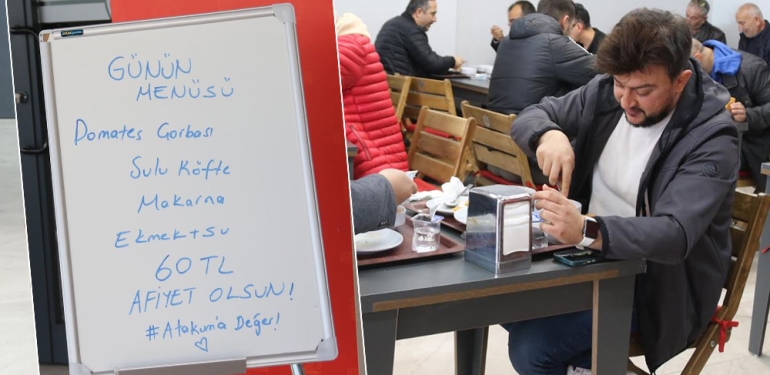 GÜNÜN
MENÜSÜ
Domates Çorbası
Sulu Köfte
Makarna
Ekmek+su
60 TL
AFİYET OLSUN!
#Atakum'a Değer!